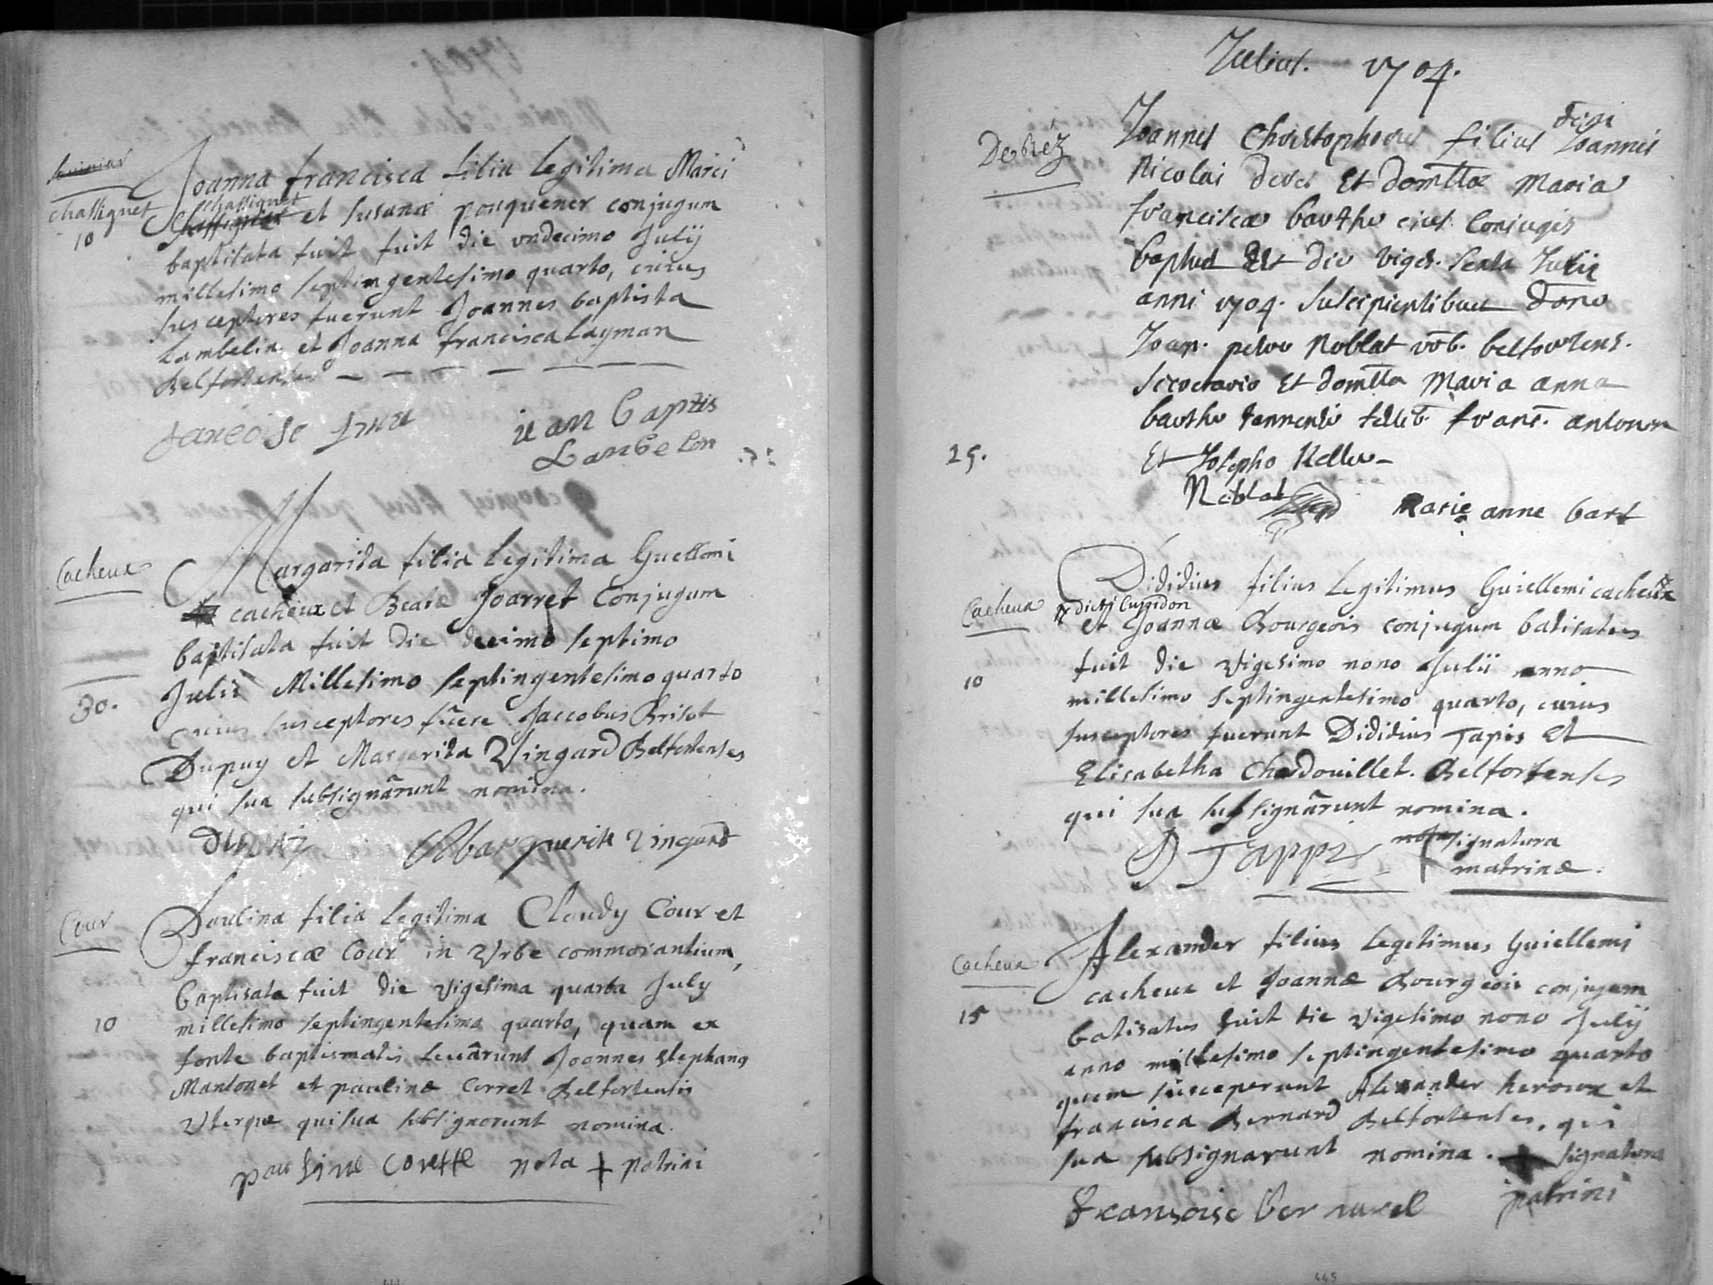 chassignet
10
Joanna francisca filia legitima Marci
chassignet
et susanæ pouquener conjugum
baptisata fuit fuit die undecimo Julij
millesimo septingentesimo quarto, cuius
susceptores fuerunt Joannes baptista
Lambelin et Joanna francisca Layman
Belfortenses
jean baptis
Lanbelen
Cacheux
30.
Margarita filia legitima Guellomi
cacheux et Beatæ Joarret Conjugum
baptisata fuit die decimo septimo
Julii Millesimo septingentesimo quarto
cuius susceptores fuere Jaccobus Brisot
Dupuy et Margarita Vingard Belfortenses
qui sua subsignârunt nomina.
Dupuy Marguerite Vingard
Cour
10
Paulina filia legitima Claudy Cour et
franciscæ Cour in Urbe commorantium,
baptisata fuit die vigesima quarta July
millesimo septingentesimo quarto, quam ex
fonte baptismatis levârunt Joannes stephanus
Mantonet et paulinæ Corret Belfortensis
Uterque qui sua subsignarunt nomina.
pauline corette nota + patrini
Julius. 1704.
Desblez
25.
dni
Joannes Christophorus filius Joannis
Nicolai Et domllæ Maria
francisca barthe eius Conjugis
baptus Est die viges. sexta Julii
anni 1704. suscipientibus dono
Joan. petro Noblat urb. belfortens.
secretario Et domlla Maria anna
barthe franc. antonon
Et Josepho Keller
Noblat Marie anne bart
Cacheux
10
Dididius filius Legitimus Guiellemi cacheux
dicti Cupidon
et Joannæ Bourgeois conjugum batisatus
fuit die vigesimo nono Julii anno
millesimo septingentesimo quarto, cuius
susceptores fuerunt Dididius Tapis Et
Elisabetha Chardouillet. Belfortenses
qui sua subsignârunt nomina.
D Tappz nota signatura
matrinæ.
Cacheux
15
Alexander filius Legetimus Guiellemi
cacheux et Joannæ Bourgeois conjugum
batisatus fuit die vigesimo nono Julij
anno millesimo septingentesimo quarto
quem susceperunt Alexander heroux et
francisca Bernard Belfortenses, qui
sua subsignarunt nomina. + signatura
patrini
fransoise bernard
445